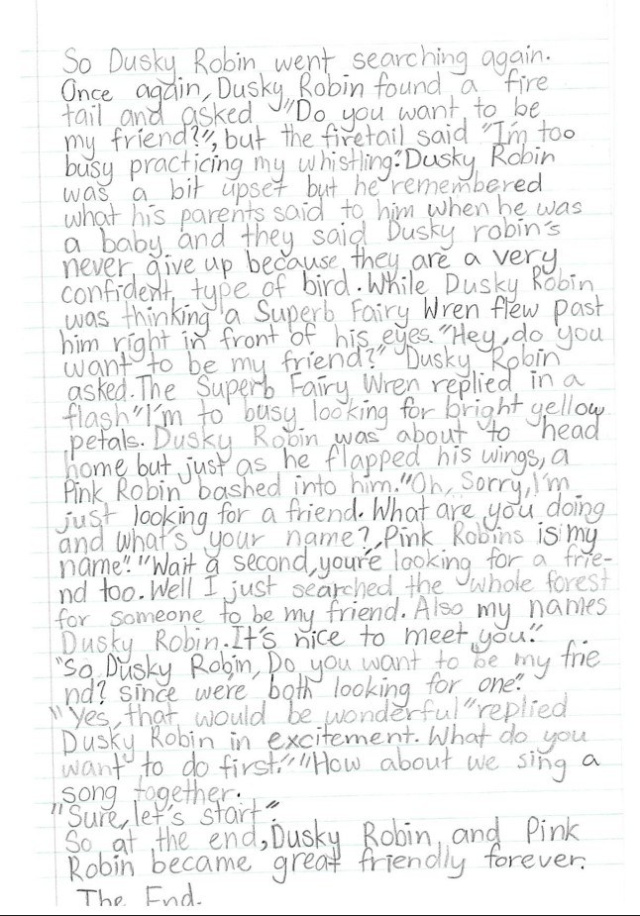 So Dusky Robin went searching again.
Once again, Dusky Robin found a fire
tail and asked "Do you want to be
my friend?", but the firetail said "I'm too
busy practicing my whistling". Dusky Robin
was a bit upset but he remembered
what his parents said to him when he was
a baby and they said Dusky robin's
never give up because they are a very
confident type of bird. While Dusky Robin
was thinking a Superb Fairy Wren flew past
him right in front of his eyes. "Hey, do you
want to be my friend?" Dusky Robin
asked. The Superb Fairy Wren replied in a
flash "I'm to busy looking for bright yellow
petals. Dusky Robin was about to head
home but just as he flapped his wings, a
Pink Robin bashed into him. "Oh, Sorry, I'm
just looking for a friend. What are you doing
and what's your name?, Pink Robins is my
name". "Wait a second, you're looking for a frie-
nd too. Well I just searched the whole forest
for someone to be my friend. Also my names
Dusky Robin. It's nice to meet you."
"So Dusky Robin, Do you want to be my frie
nd? since were both looking for one".
"Yes, that would be wonderful" replied
Dusky Robin in excitement. What do you
want to do first." "How about we sing a
song together.
"Sure, let's start".
So at the end, Dusky Robin and Pink
Robin became great friendly forever.
The End.